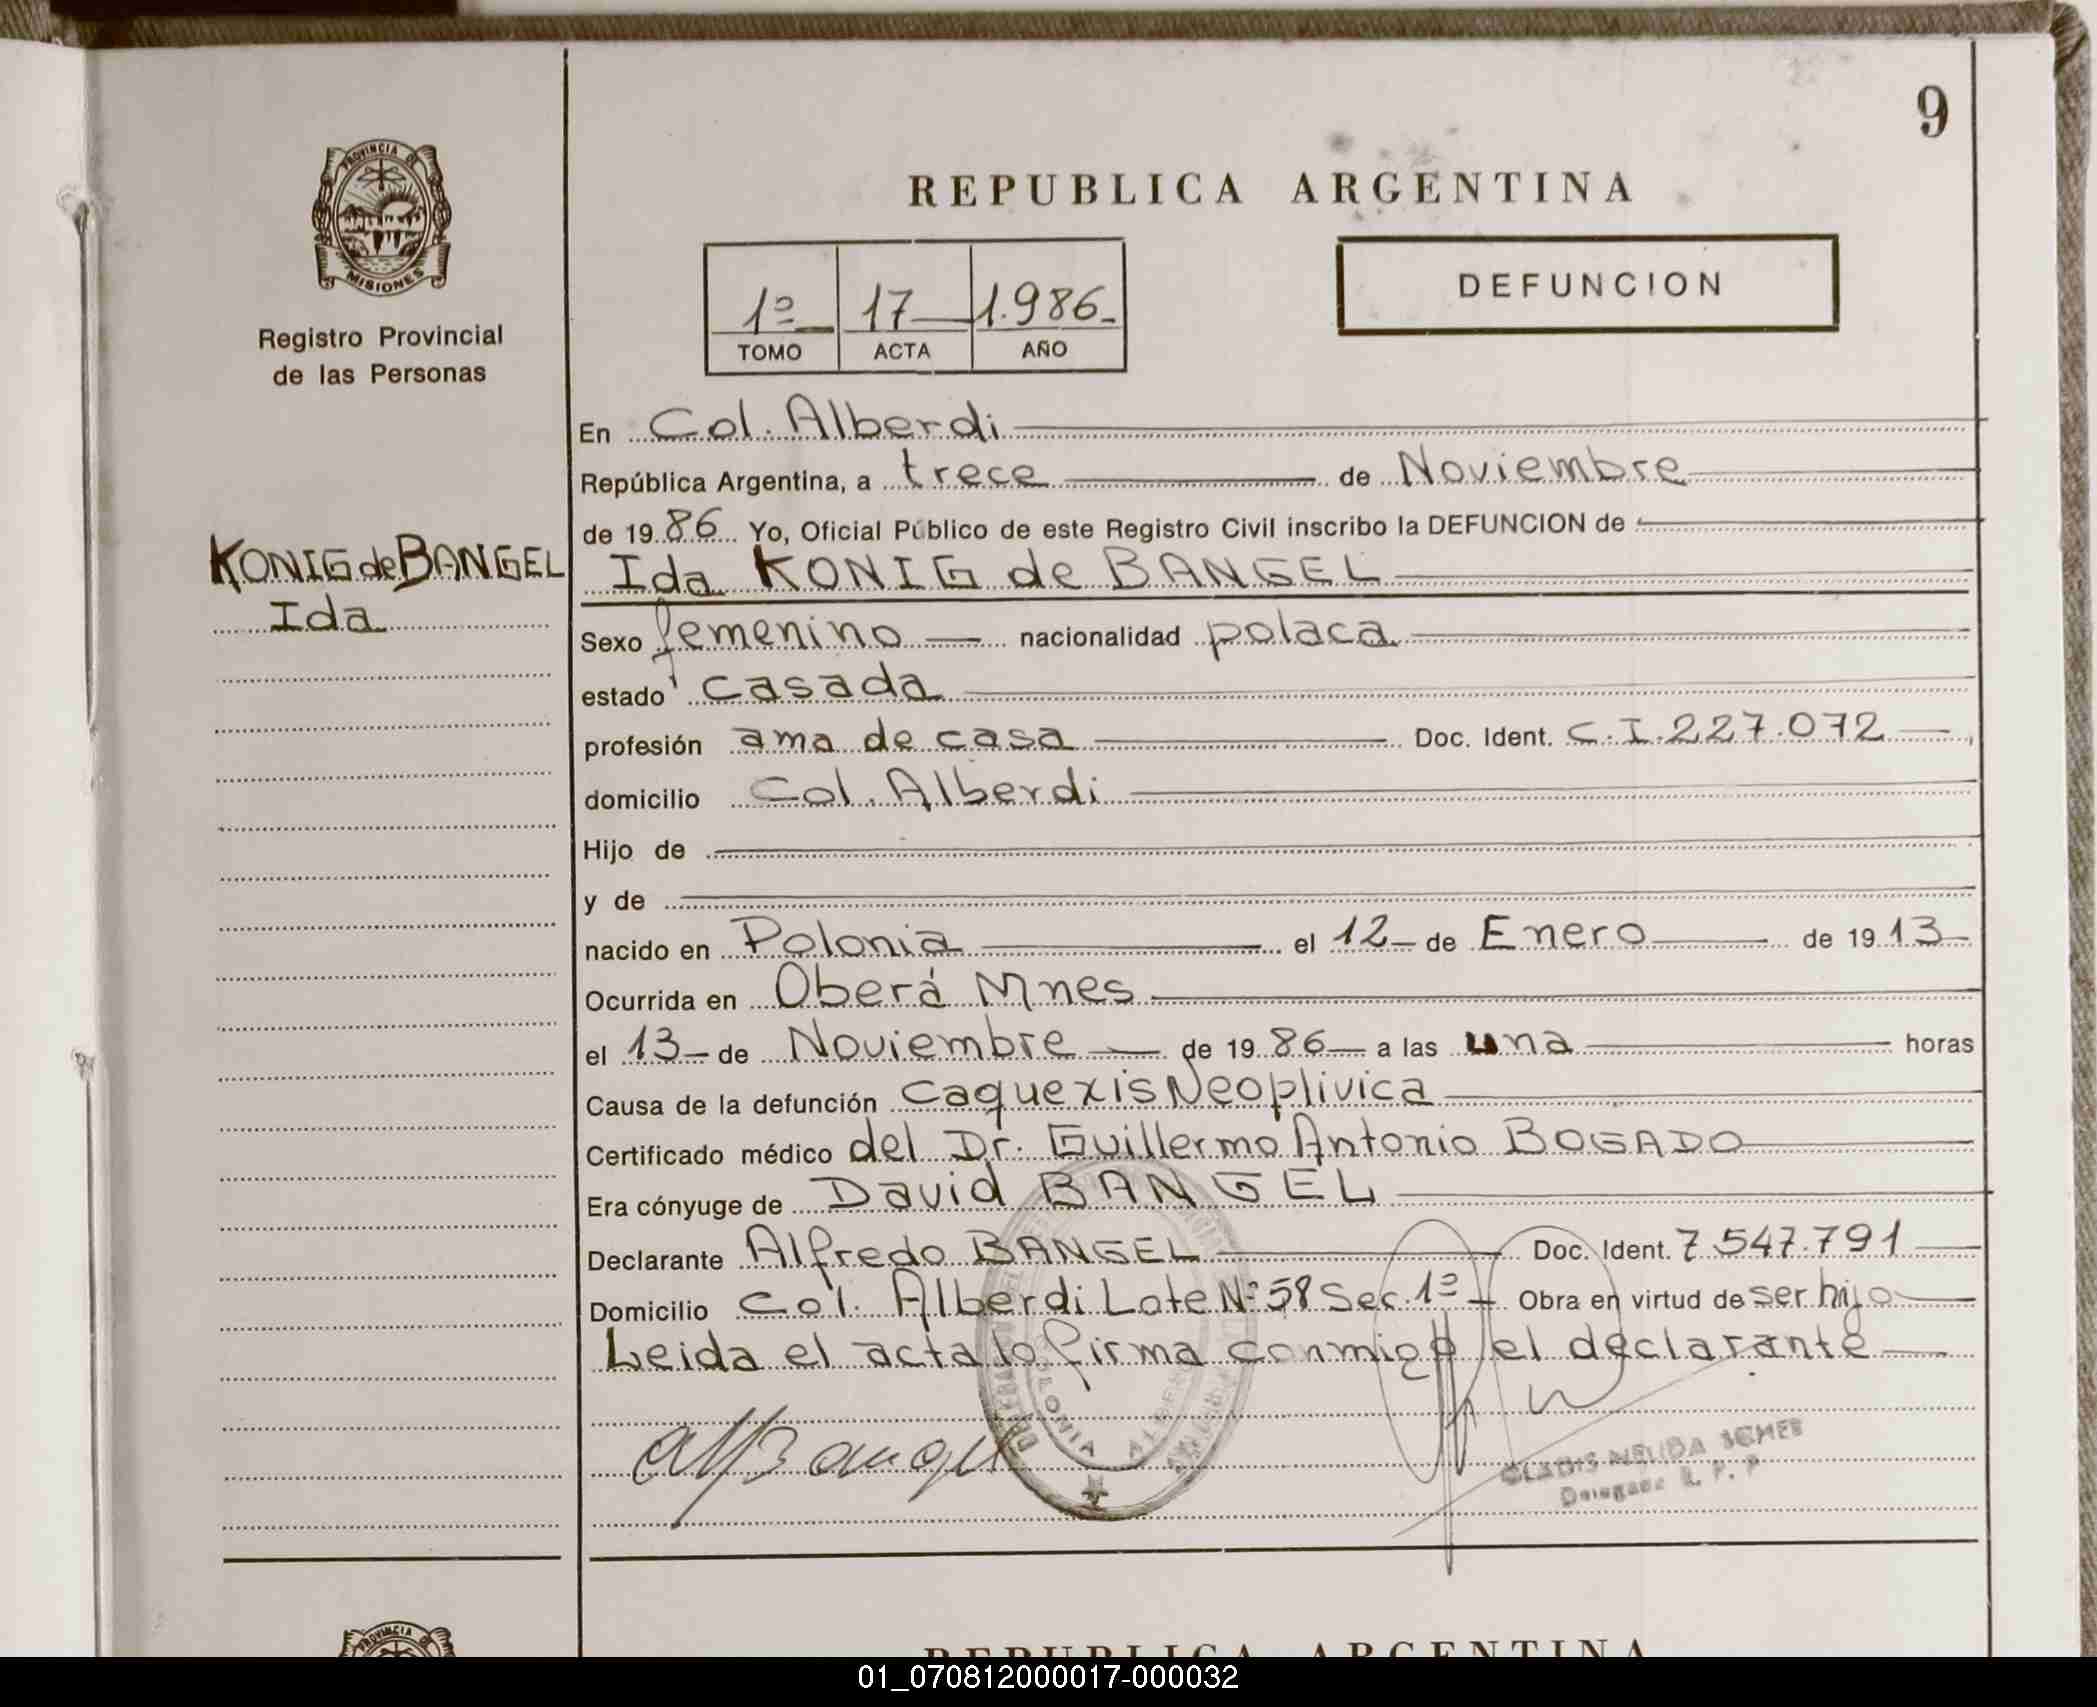 9
PROVINCIA DE
MISIONES
Registro Provincial
de las Personas
KONIG de BANGEL
Ida
REPUBLICA ARGENTINA
1º 17 1.986
TOMO ACTA AÑO
DEFUNCION
En Col. Alberdi
República Argentina, a trece de Noviembre
de 1986 Yo, Oficial Público de este Registro Civil inscribo la DEFUNCION de
Ida KONIG de BANGEL
Sexo femenino nacionalidad polaca
estado casada
profesión ama de casa Doc. Ident. C.I.227.072
domicilio Col. Alberdi
Hijo de
y de
nacido en Polonia el 12 de Enero de 1913
Ocurrida en Oberá Mnes
el 13 de Noviembre de 1986 a las una horas
Causa de la defunción Caquexis Neoplivica
Certificado médico del Dr. Guillermo Antonio BOGADO
Era cónyuge de David BANGEL
Declarante Alfredo BANGEL Doc. Ident. 7.547.791
Domicilio Col. Alberdi Lote Nº 58 Sec. 1º Obra en virtud de ser hijo
Leida el acta lo firma conmigo el declarante
COLONIA ALBERDI
GLADIS
Delegada R. P. P
PROVINCIA
REPUBLICA ARGENTINA
01_070812000017-000032